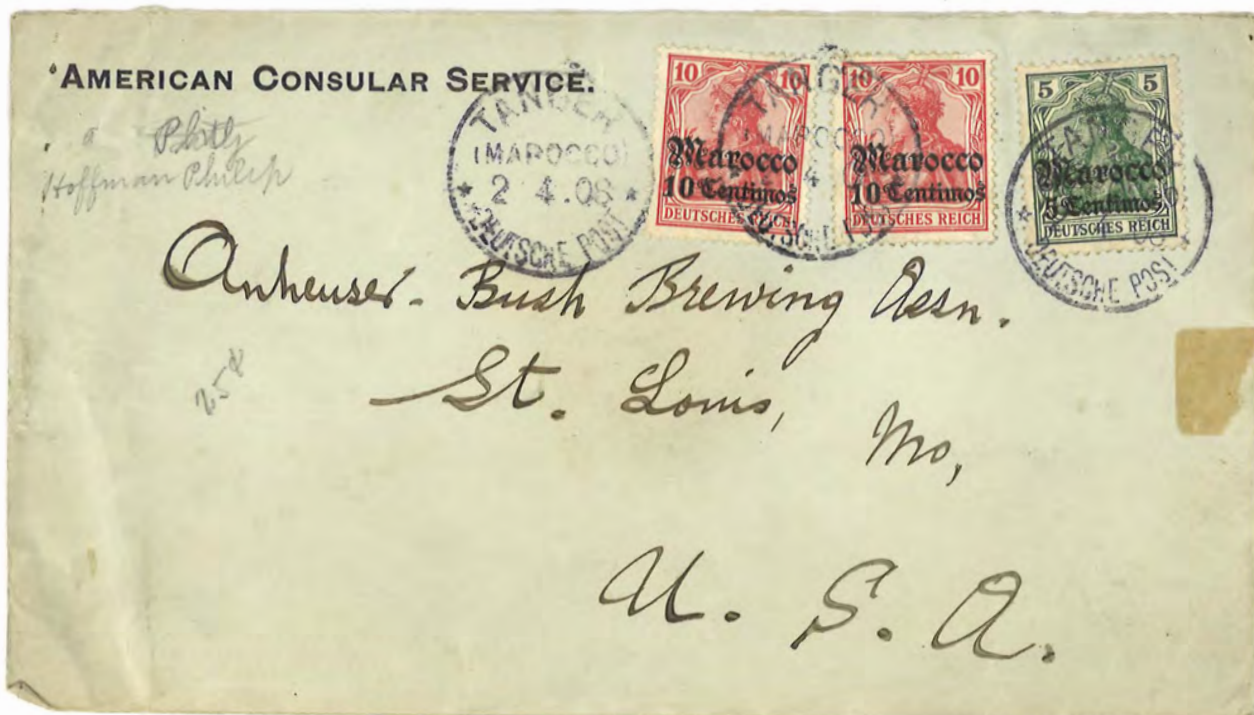 AMERICAN CONSULAR SERVICE.
Hoffman Philip
TANGER
(MAROCCO)
2 4.06
DEUTSCHE POST
10 10
Marocco
10 Centimos
DEUTSCHES REICH
TANGER
(MAROCCO)
4
DEUTSCHE POST
10 10
Marocco
10 Centimos
DEUTSCHES REICH
5 5
Marocco
5 Centimos
DEUTSCHES REICH
TANGER
DEUTSCHE POST
Anheuser-Bush Brewing Assn.
258
St. Louis,
Mo,
U. S. A.